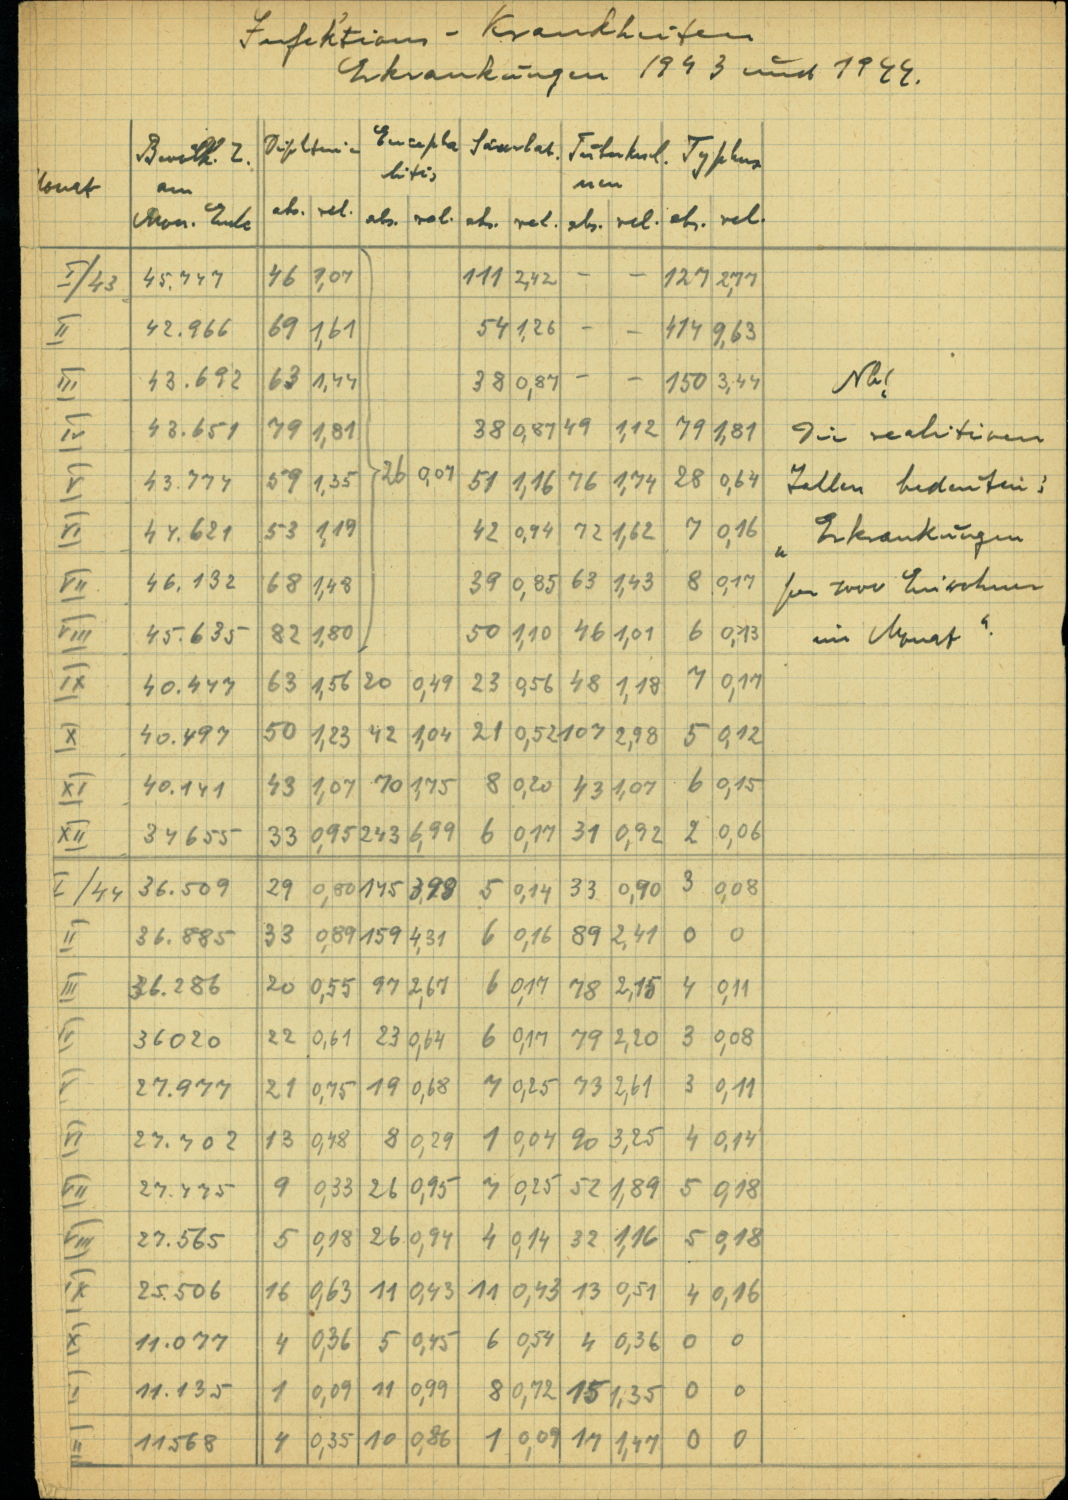 Infektions - Krankheiten
Erkrankungen 1943 und 1944.
Monat Bevölk. Z. am Mon. Ende Diphterie abs. rel. Encephalitis abs. rel. Scarlat. abs. rel. Tuberkul. neu abs. rel. Typhus abs. rel.
I/43 45.747 46 1,07 111 2,42 - - 127 2,77
II 42.966 69 1,61 54 1,26 - - 414 9,63
III 43.692 63 1,44 38 0,87 - - 150 3,44
IV 43.651 79 1,81 38 0,87 49 1,12 79 1,81
V 43.774 59 1,35 26 0,07 51 1,16 76 1,74 28 0,64
VI 44.621 53 1,19 42 0,94 72 1,62 7 0,16
VII 46.132 68 1,48 39 0,85 63 1,43 8 0,17
VIII 45.635 82 1,80 50 1,10 46 1,01 6 0,13
IX 40.447 63 1,56 20 0,49 23 0,56 48 1,18 7 0,17
X 40.497 50 1,23 42 1,04 21 0,52 107 2,98 5 0,12
XI 40.141 43 1,07 70 1,75 8 0,20 43 1,07 6 0,15
XII 34655 33 0,95 243 6,99 6 0,17 31 0,92 2 0,06
I/44 36.509 29 0,80 145 3,98 5 0,14 33 0,90 3 0,08
II 36.885 33 0,89 159 4,31 6 0,16 89 2,41 0 0
III 36.286 20 0,55 97 2,67 6 0,17 78 2,15 4 0,11
36020 22 0,61 23 0,64 6 0,17 79 2,20 3 0,08
V 27.977 21 0,75 19 0,68 7 0,25 73 2,61 3 0,11
VI 27.702 13 0,48 8 0,29 1 0,04 90 3,25 4 0,14
VII 27.445 9 0,33 26 0,95 7 0,25 52 1,89 5 0,18
VIII 27.565 5 0,18 26 0,94 4 0,14 32 1,16 5 0,18
IX 25.506 16 0,63 11 0,43 11 0,43 13 0,51 4 0,16
X 11.077 4 0,36 5 0,45 6 0,54 4 0,36 0 0
11.135 1 0,09 11 0,99 8 0,72 15 1,35 0 0
II 11568 4 0,35 10 0,86 1 0,09 17 1,47 0 0
Nb!
Die realitiven
Zallen bedeuten:
„Erkrankungen
per 1000 Einwohner
im Monat“.